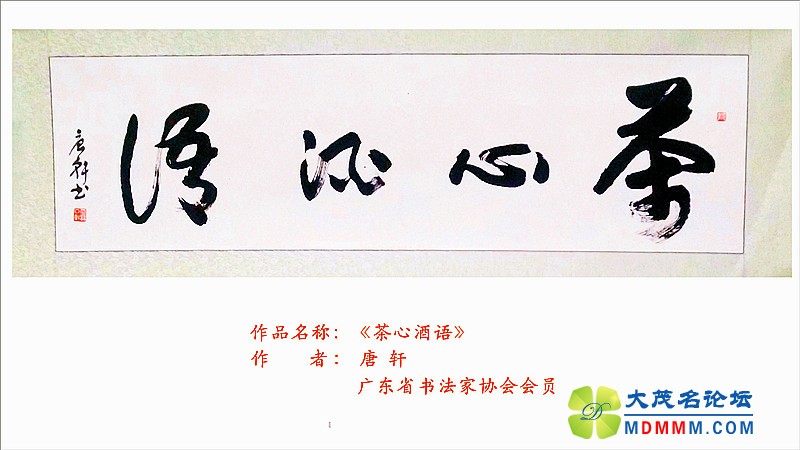 茶心酒语
唐轩书
作品名称：《茶心酒语》
作 者：唐 轩
广东省书法家协会会员
大茂名论坛
MDMMM.COM